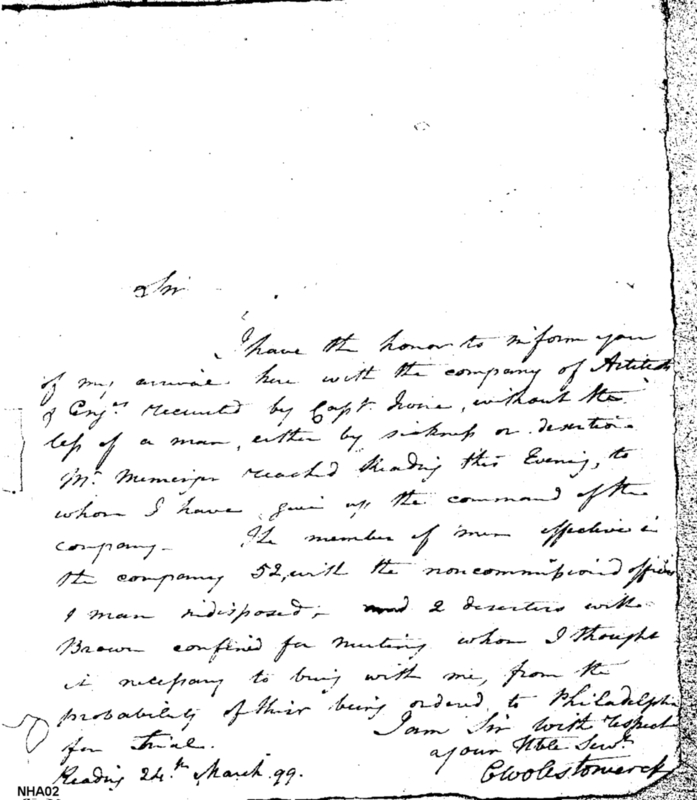 Sir
I have the honor to inform you
of my arrival here with the company of Artill
& Engrs recruited by Capt. Irvine, without the
loss of a man, either by sickness or desertion
Mr. Meminger reached Reading this Evening, to
whom I have given up the command of the
company. The number of men effective in
the company 52, with the noncommissioned officers
1 man indisposed, and 2 deserters with
Brown confined for mutiny whom I thought
it necessary to bring with me, from the
probability of their being ordered to Philadelphia
for Trial.
I am Sir with respect
your Hble Servt.
Reading 24th March 99.
NHA02